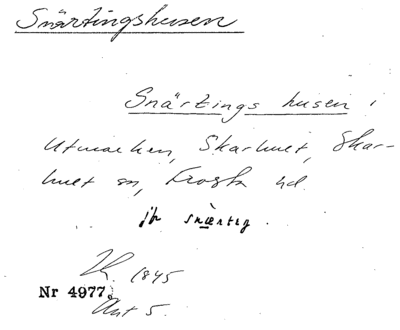 Snärtingshusen
Snärtings husen i
Utmarken, Skarhult, Skar-
hult sn, Frosta hd.
jfr snærtig.
1845
Nr 4977.